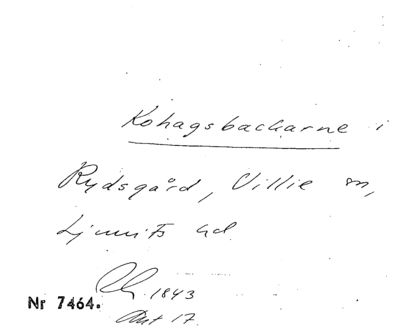 Kohagsbackarne i
Rydsgård, Villie sn,
Ljunits hd
1843
Nr 7464.
17